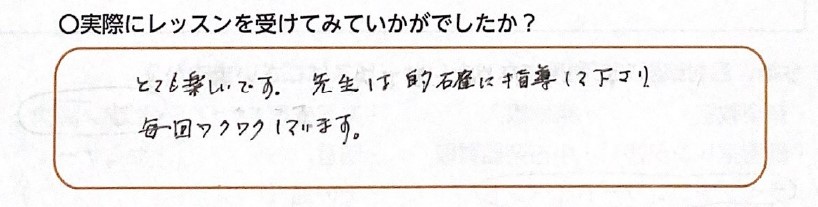 〇実際にレッスンを受けてみていかがでしたか？
とても楽しいです。先生は的確に指導して下さり
毎回ワクワクしています。